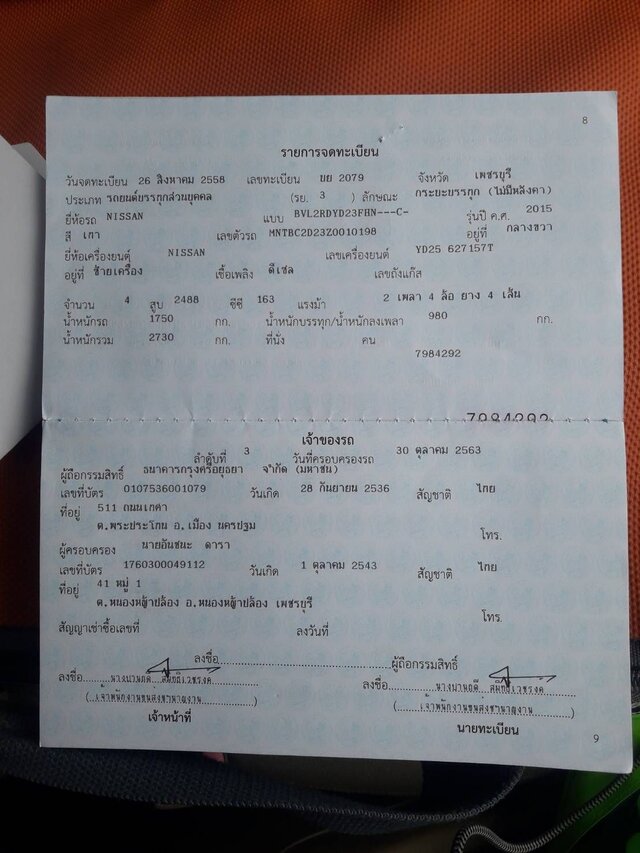 8
รายการจดทะเบียน
วันจดทะเบียน 26 สิงหาคม 2558 เลขทะเบียน ขย 2079 จังหวัด เพชรบุรี
ประเภท รถยนต์บรรทุกส่วนบุคคล (รย. 3 ) ลักษณะ กระบะบรรทุก (ไม่มีหลังคา)
ยี่ห้อรถ NISSAN แบบ BVL2RDYD23FHN---C- รุ่นปี ค.ศ. 2015
สี เทา เลขตัวรถ MNTBC2D23Z0010198 อยู่ที่ กลางขวา
ยี่ห้อเครื่องยนต์ NISSAN เลขเครื่องยนต์ YD25 627157T
อยู่ที่ ซ้ายเครื่อง เชื้อเพลิง ดีเซล เลขถังแก๊ส
จำนวน 4 สูบ 2488 ซีซี 163 แรงม้า 2 เพลา 4 ล้อ ยาง 4 เส้น
น้ำหนักรถ 1750 กก. น้ำหนักบรรทุก/น้ำหนักลงเพลา 980 กก.
น้ำหนักรวม 2730 กก. ที่นั่ง คน
7984292
7984292
เจ้าของรถ
ลำดับที่ 3 วันที่ครอบครองรถ 30 ตุลาคม 2563
ผู้ถือกรรมสิทธิ์ ธนาคารกรุงศรีอยุธยา จำกัด (มหาชน)
เลขที่บัตร 0107536001079 วันเกิด 28 กันยายน 2536 สัญชาติ ไทย
ที่อยู่ 511 ถนนเทศา
ต.พระประโทน อ.เมือง นครปฐม
โทร.
ผู้ครอบครอง นายอันชนะ ดารา
เลขที่บัตร 1760300049112 วันเกิด 1 ตุลาคม 2543 สัญชาติ ไทย
ที่อยู่ 41 หมู่ 1
ต.หนองหญ้าปล้อง อ.หนองหญ้าปล้อง เพชรบุรี
โทร.
สัญญาเช่าซื้อเลขที่ ลงวันที่
ลงชื่อ ผู้ถือกรรมสิทธิ์
ลงชื่อ ลงชื่อ
(เจ้าพนักงานขนส่งชำนาญงาน) (เจ้าพนักงานขนส่งชำนาญงาน)
เจ้าหน้าที่ นายทะเบียน
9